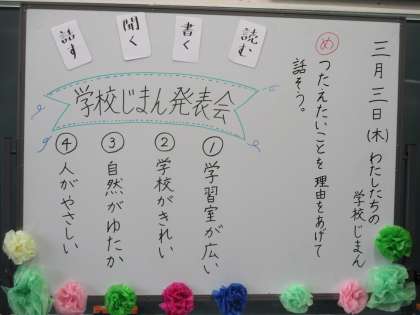 三月三日(木) わたしたちの
学校じまん
め つたえたいことを理由をあげて
話そう。
読む
書く
聞く
話す
学校じまん発表会
① 学習室が広い
② 学校がきれい
③ 自然がゆたか
④ 人がやさしい